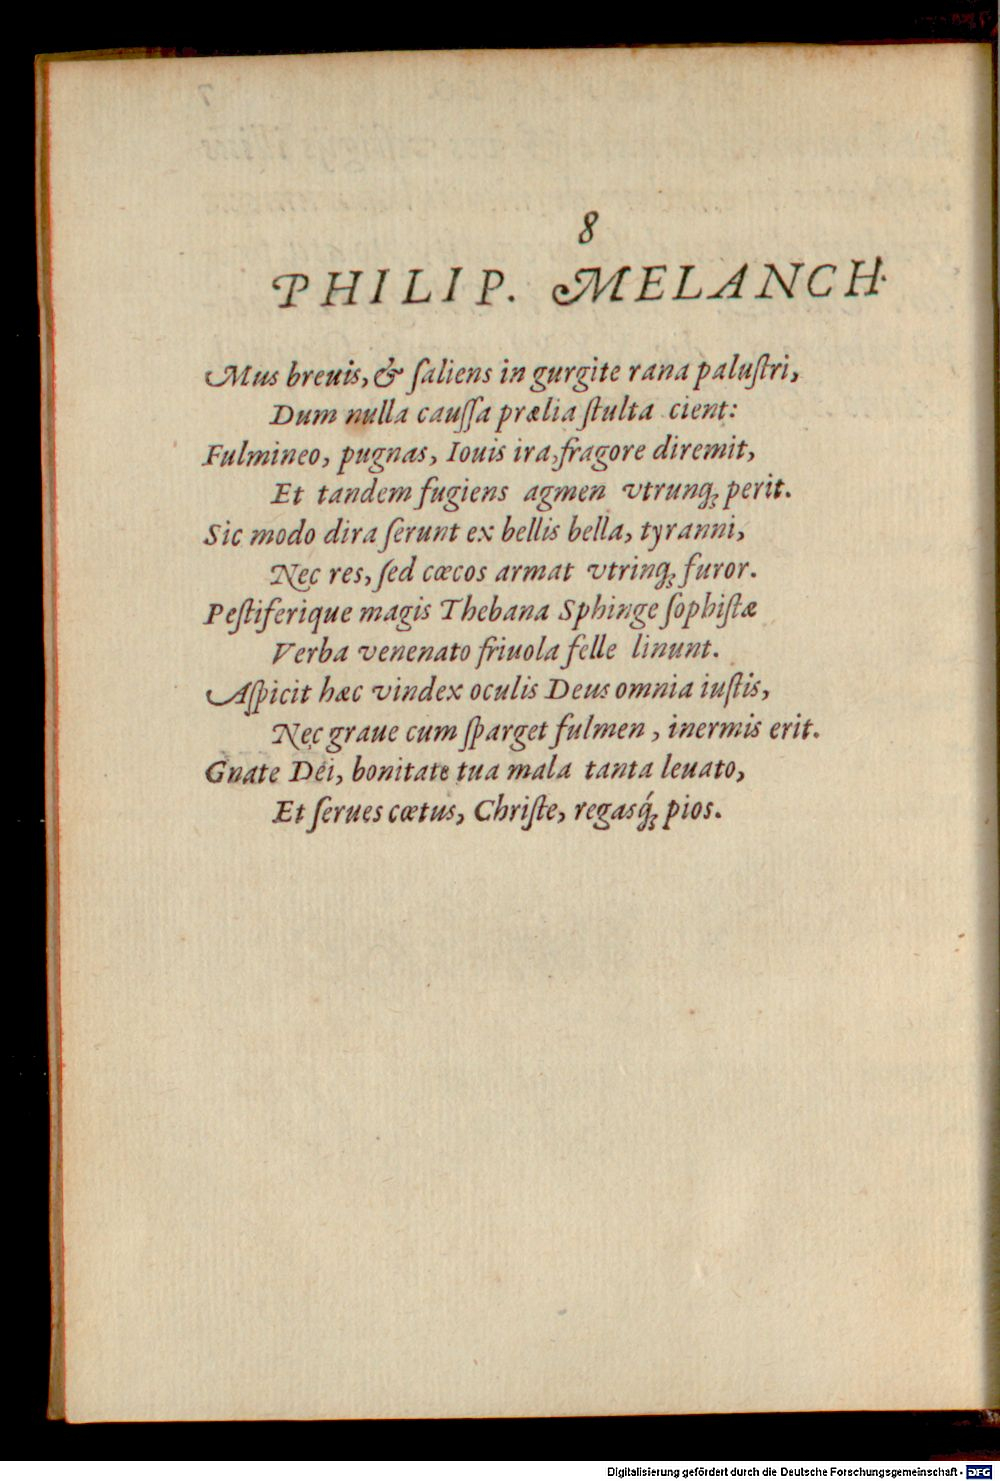 8
PHILIP. MELANCH.
Mus breuis, & ſaliens in gurgite rana paluſtri,
Dum nulla cauſſa prælia ſtulta cient:
Fulmineo, pugnas, Iouis ira, fragore diremit,
Et tandem fugiens agmen vtrunq; perit.
Sic modo dira ſerunt ex bellis bella, tyranni,
Nec res, ſed cœcos armat vtrinq; furor.
Peſtiferique magis Thebana Sphinge ſophiſtæ
Verba venenato friuola felle linunt.
Aſpicit hæc vindex oculis Deus omnia iuſtis,
Nec graue cum ſparget fulmen, inermis erit.
Gnate Dei, bonitate tua mala tanta leuato,
Et ſerues cœtus, Chriſte, regasq́; pios.
Digitalisierung gefördert durch die Deutsche Forschungsgemeinschaft - DFG